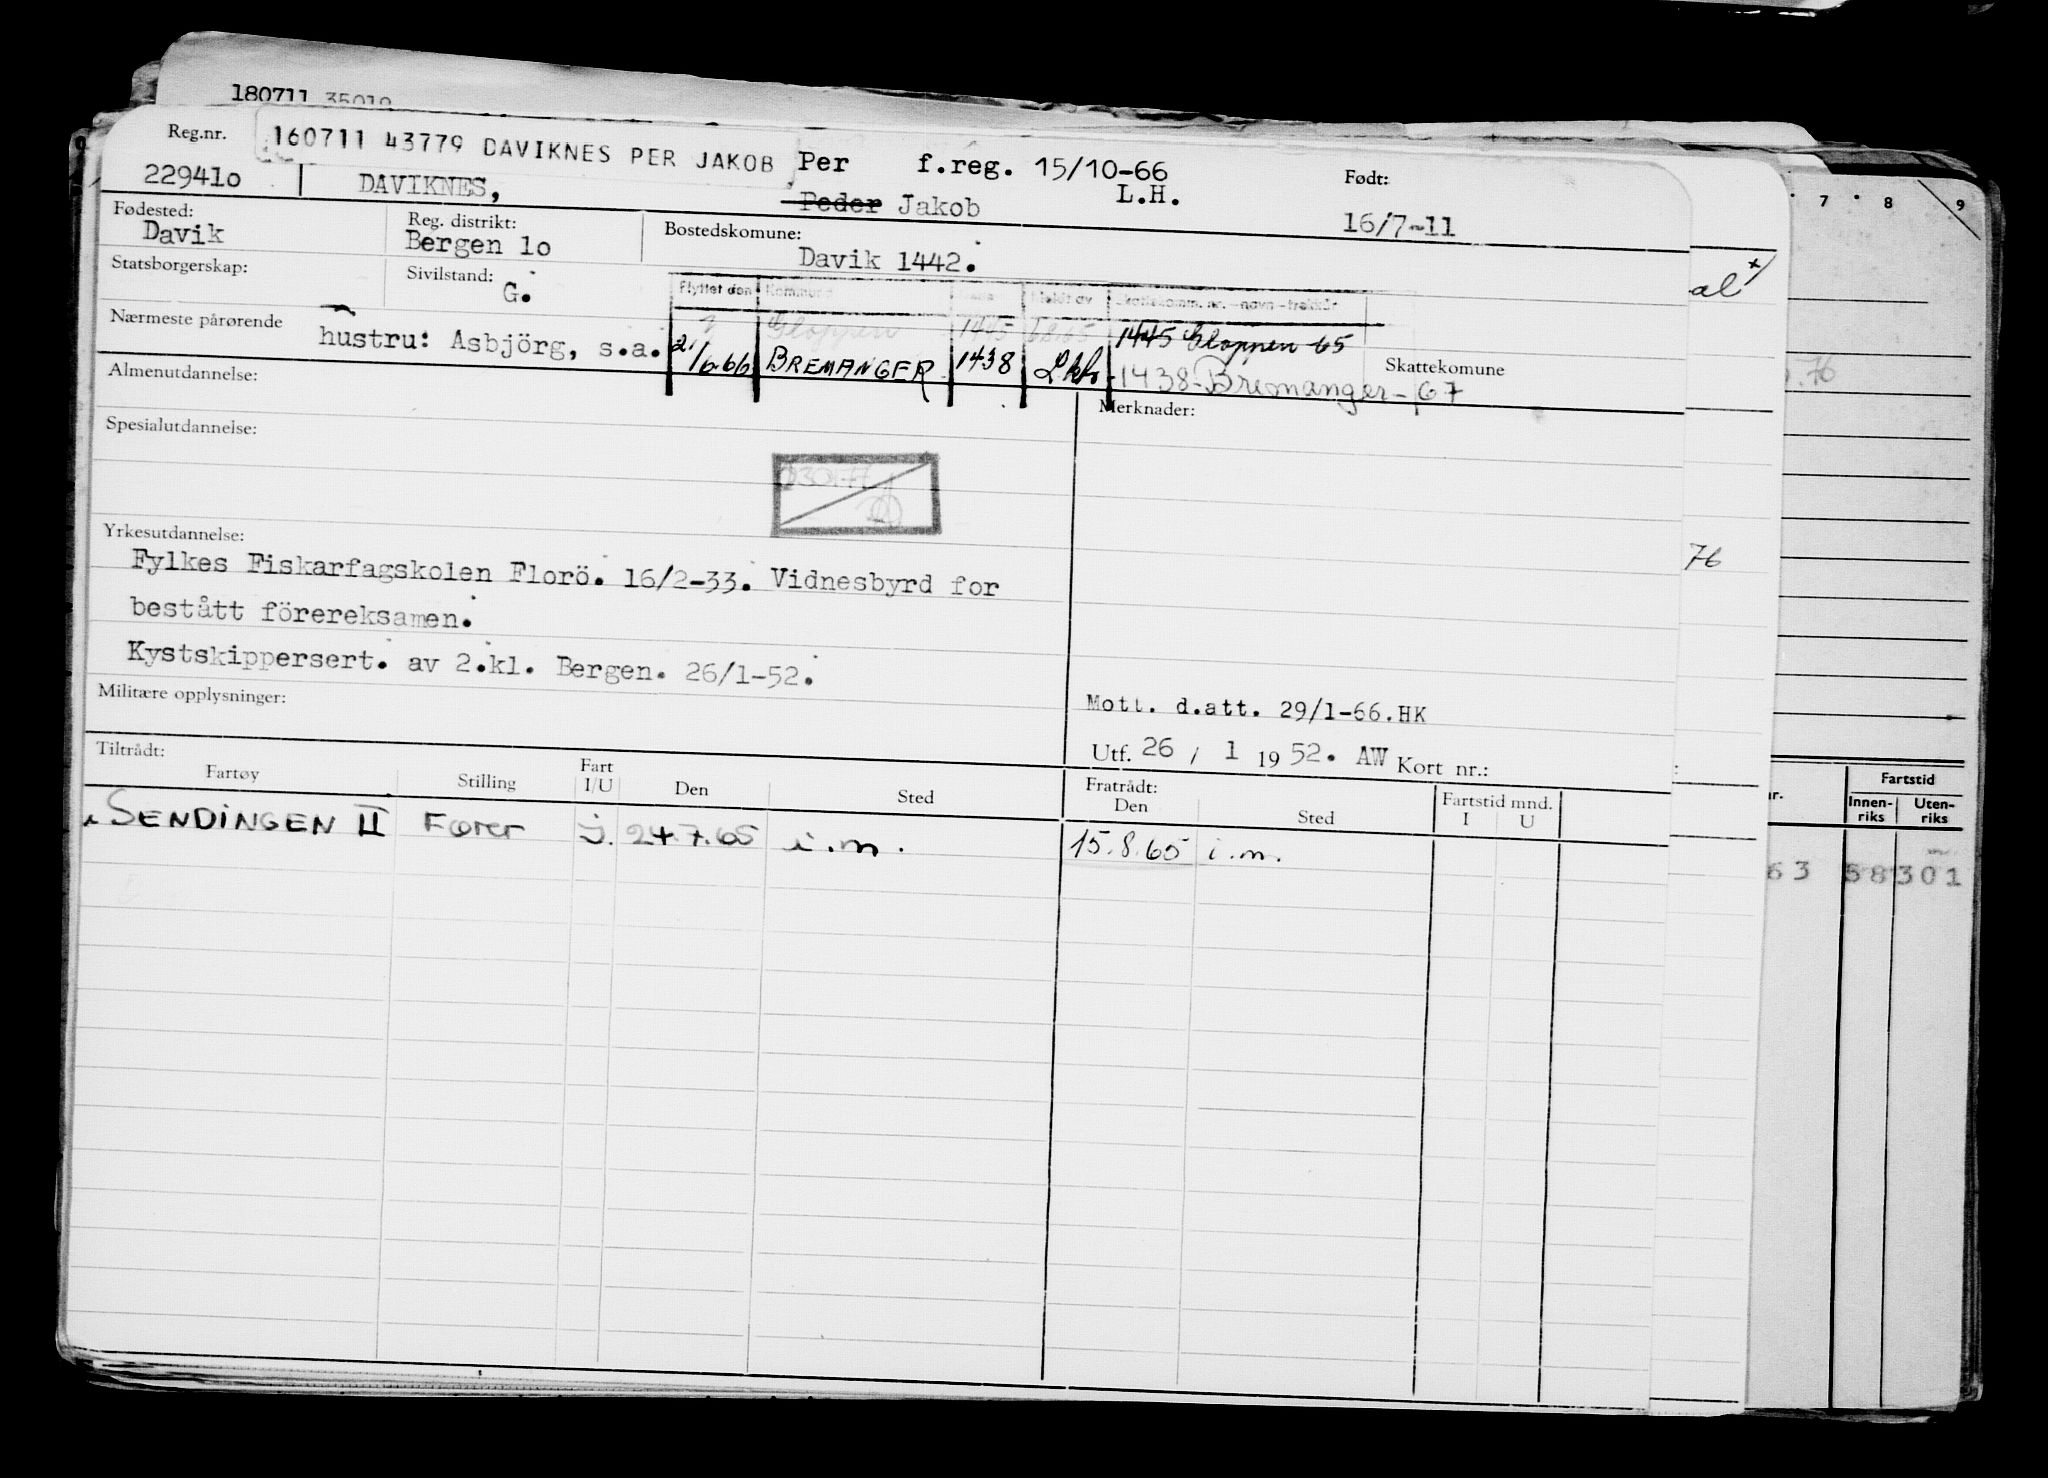 180711 35019
Reg.nr. 160711 43779 DAVIKNES PER JAKOB Per f.reg. 15/10-66
22941o DAVIKNES, Peder Jakob L.H. Født: 16/7-11
Fødested: Davik Reg. distrikt: Bergen 1o Bostedskomune: Davik 1442.
Statsborgerskap: Sivilstand: G.
Flyttet den Kommune Meldt av Skattekomm. nr. - navn - trekkår
Gloppen 1445 6865 1445 Gloppen 65
Nærmeste pårørende hustru: Asbjörg, s.a. 2/6.66 BREMANGER 1438 1438-Bremanger-67 Skattekomune
Almenutdannelse: Merknader:
Spesialutdannelse:
Yrkesutdannelse:
Fylkes Fiskarfagskolen Florö. 16/2-33. Vidnesbyrd for
bestått förereksamen.
Kystskippersert. av 2.kl. Bergen. 26/1-52.
Militære opplysninger: Mott. d.att. 29/1-66.HK
Utf. 26 / 1 19 52. AW Kort nr.:
Tiltrådt: Fratrådt: Fartstid mnd.
Fartøy Stilling Fart I/U Den Sted Den Sted I U
SENDINGEN II Fører j. 24.7.65 i.m. 15.8.65 i.m.
7 8 9
al x
76
76
: r. Fartstid
Innen-riks Uten-riks
63 58 301